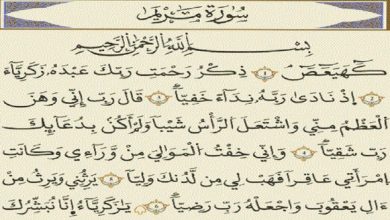 سُورَةُ مَرْيَمَ
بِسْمِ ٱللَّهِ ٱلرَّحْمَٰنِ ٱلرَّحِيمِ
كٓهيعٓصٓ ١ ذِكْرُ رَحْمَتِ رَبِّكَ عَبْدَهُۥ زَكَرِيَّآءَ
٢ إِذْ نَادَىٰ رَبَّهُۥ نِدَآءً خَفِيًّا ٣ قَالَ رَبِّ إِنِّي وَهَنَ
ٱلْعَظْمُ مِنِّي وَٱشْتَعَلَ ٱلرَّأْسُ شَيْبًا وَلَمْ أَكُنۢ بِدُعَآئِكَ
رَبِّ شَقِيًّا ٤ وَإِنِّي خِفْتُ ٱلْمَوَٰلِيَ مِن وَرَآءِي وَكَانَتِ
ٱمْرَأَتِي عَاقِرًا فَهَبْ لِي مِن لَّدُنكَ وَلِيًّا ٥ يَرِثُنِي وَيَرِثُ مِنْ
ءَالِ يَعْقُوبَ وَٱجْعَلْهُ رَبِّ رَضِيًّا ٦ يَٰزَكَرِيَّآءُ إِنَّا نُبَشِّرُكَ